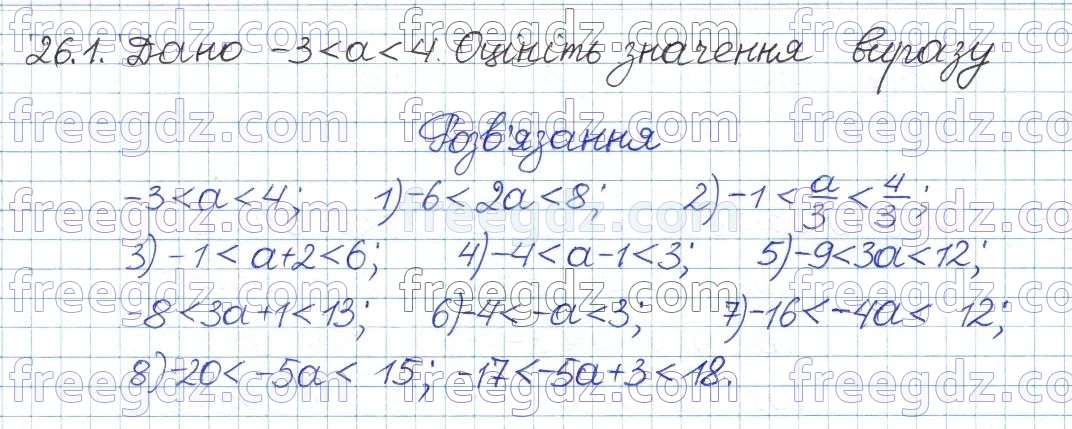 26.1. Дано -3<a<4. Оцініть значення виразу
Розв'язання
-3<a<4; 1) -6<2a<8; 2) -1<a/3<4/3;
3) -1<a+2<6; 4) -4<a-1<3; 5) -9<3a<12;
-8<3a+1<13; 6) -4<-a<3; 7) -16<-4a< 12;
8) -20<-5a< 15; -17<-5a+3<18.
freegdz.com freegdz.com freegdz.com freegdz.com
freegdz.com freegdz.com freegdz.com freegdz.com
freegdz.com freegdz.com freegdz.com freegdz.com
freegdz.com freegdz.com freegdz.com freegdz.com
freegdz.com freegdz.com freegdz.com freegdz.com